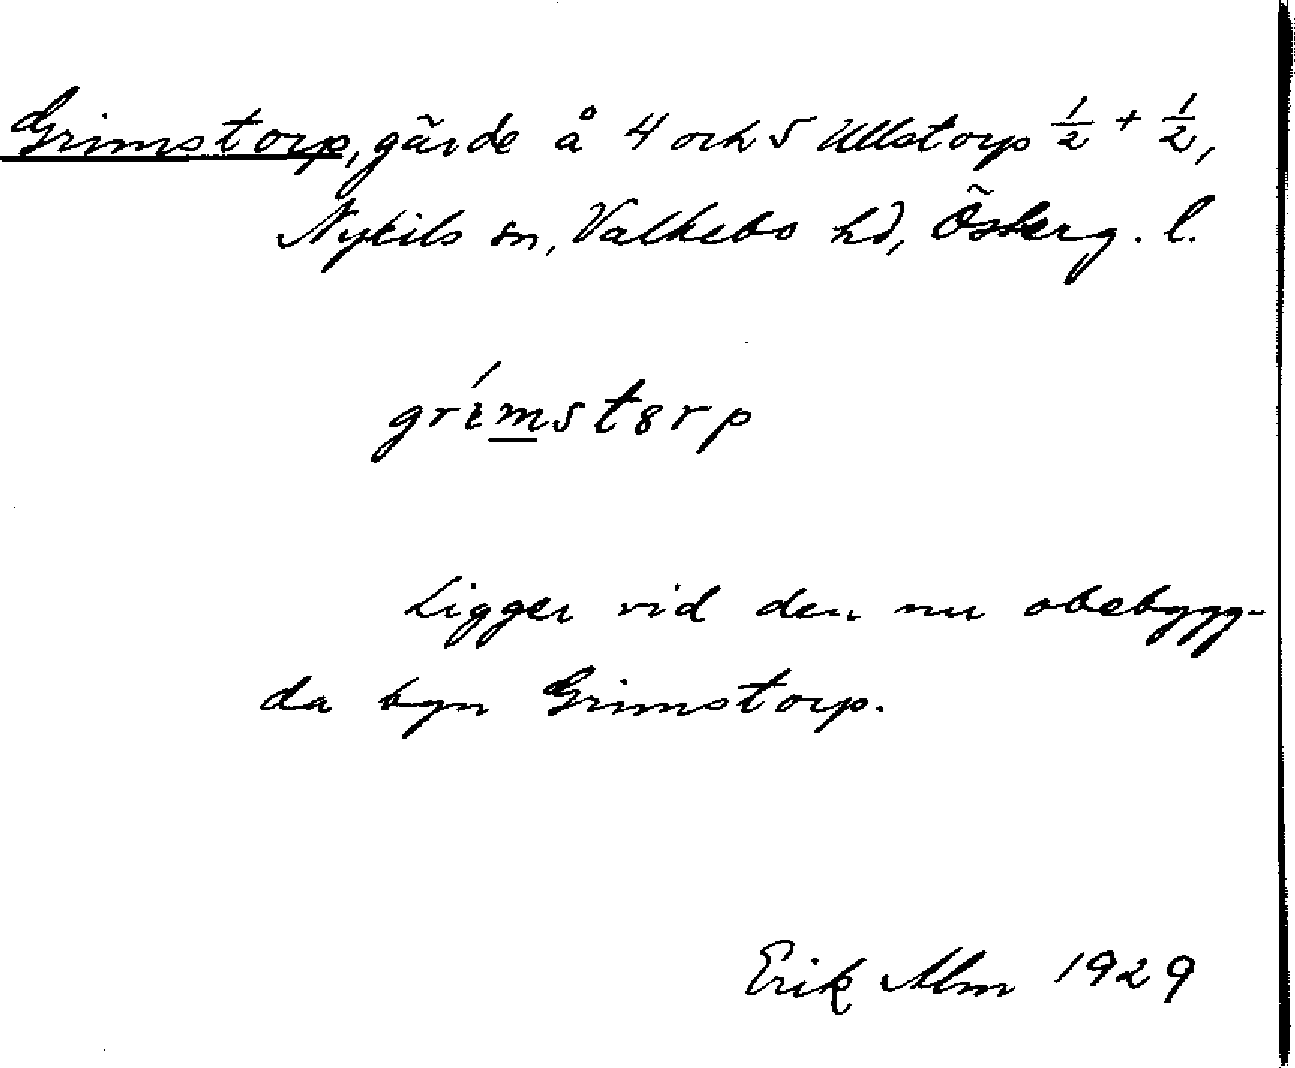 Grimstorp, gärde å 4 och 5 Ullstorp ½ + ½,
Nykils sn, Valkebo hd, Österg. l.
grímst8rp
Ligger vid den nu obebygg-
da byn Grimstorp.
Erik Alm 1929